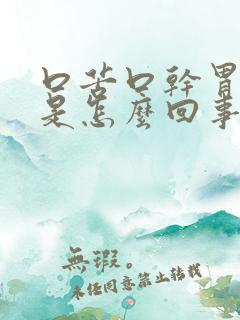 口苦口幹胃
是怎麼回事
無瑕。
未经同意禁止转载